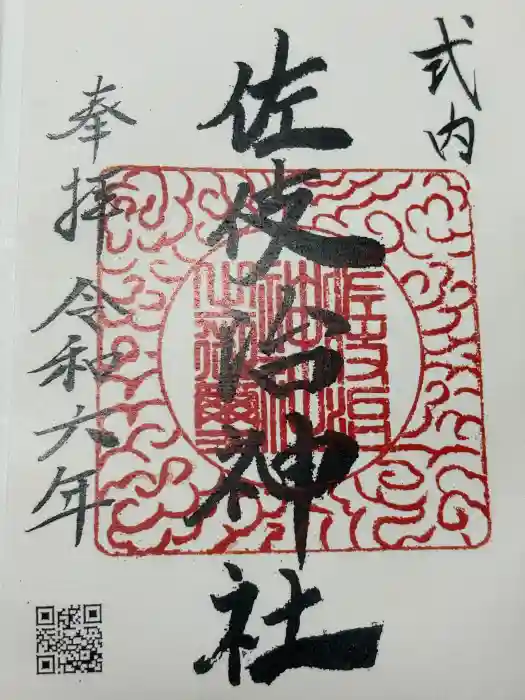 式内
佐伎治神社
奉拝 令和六年